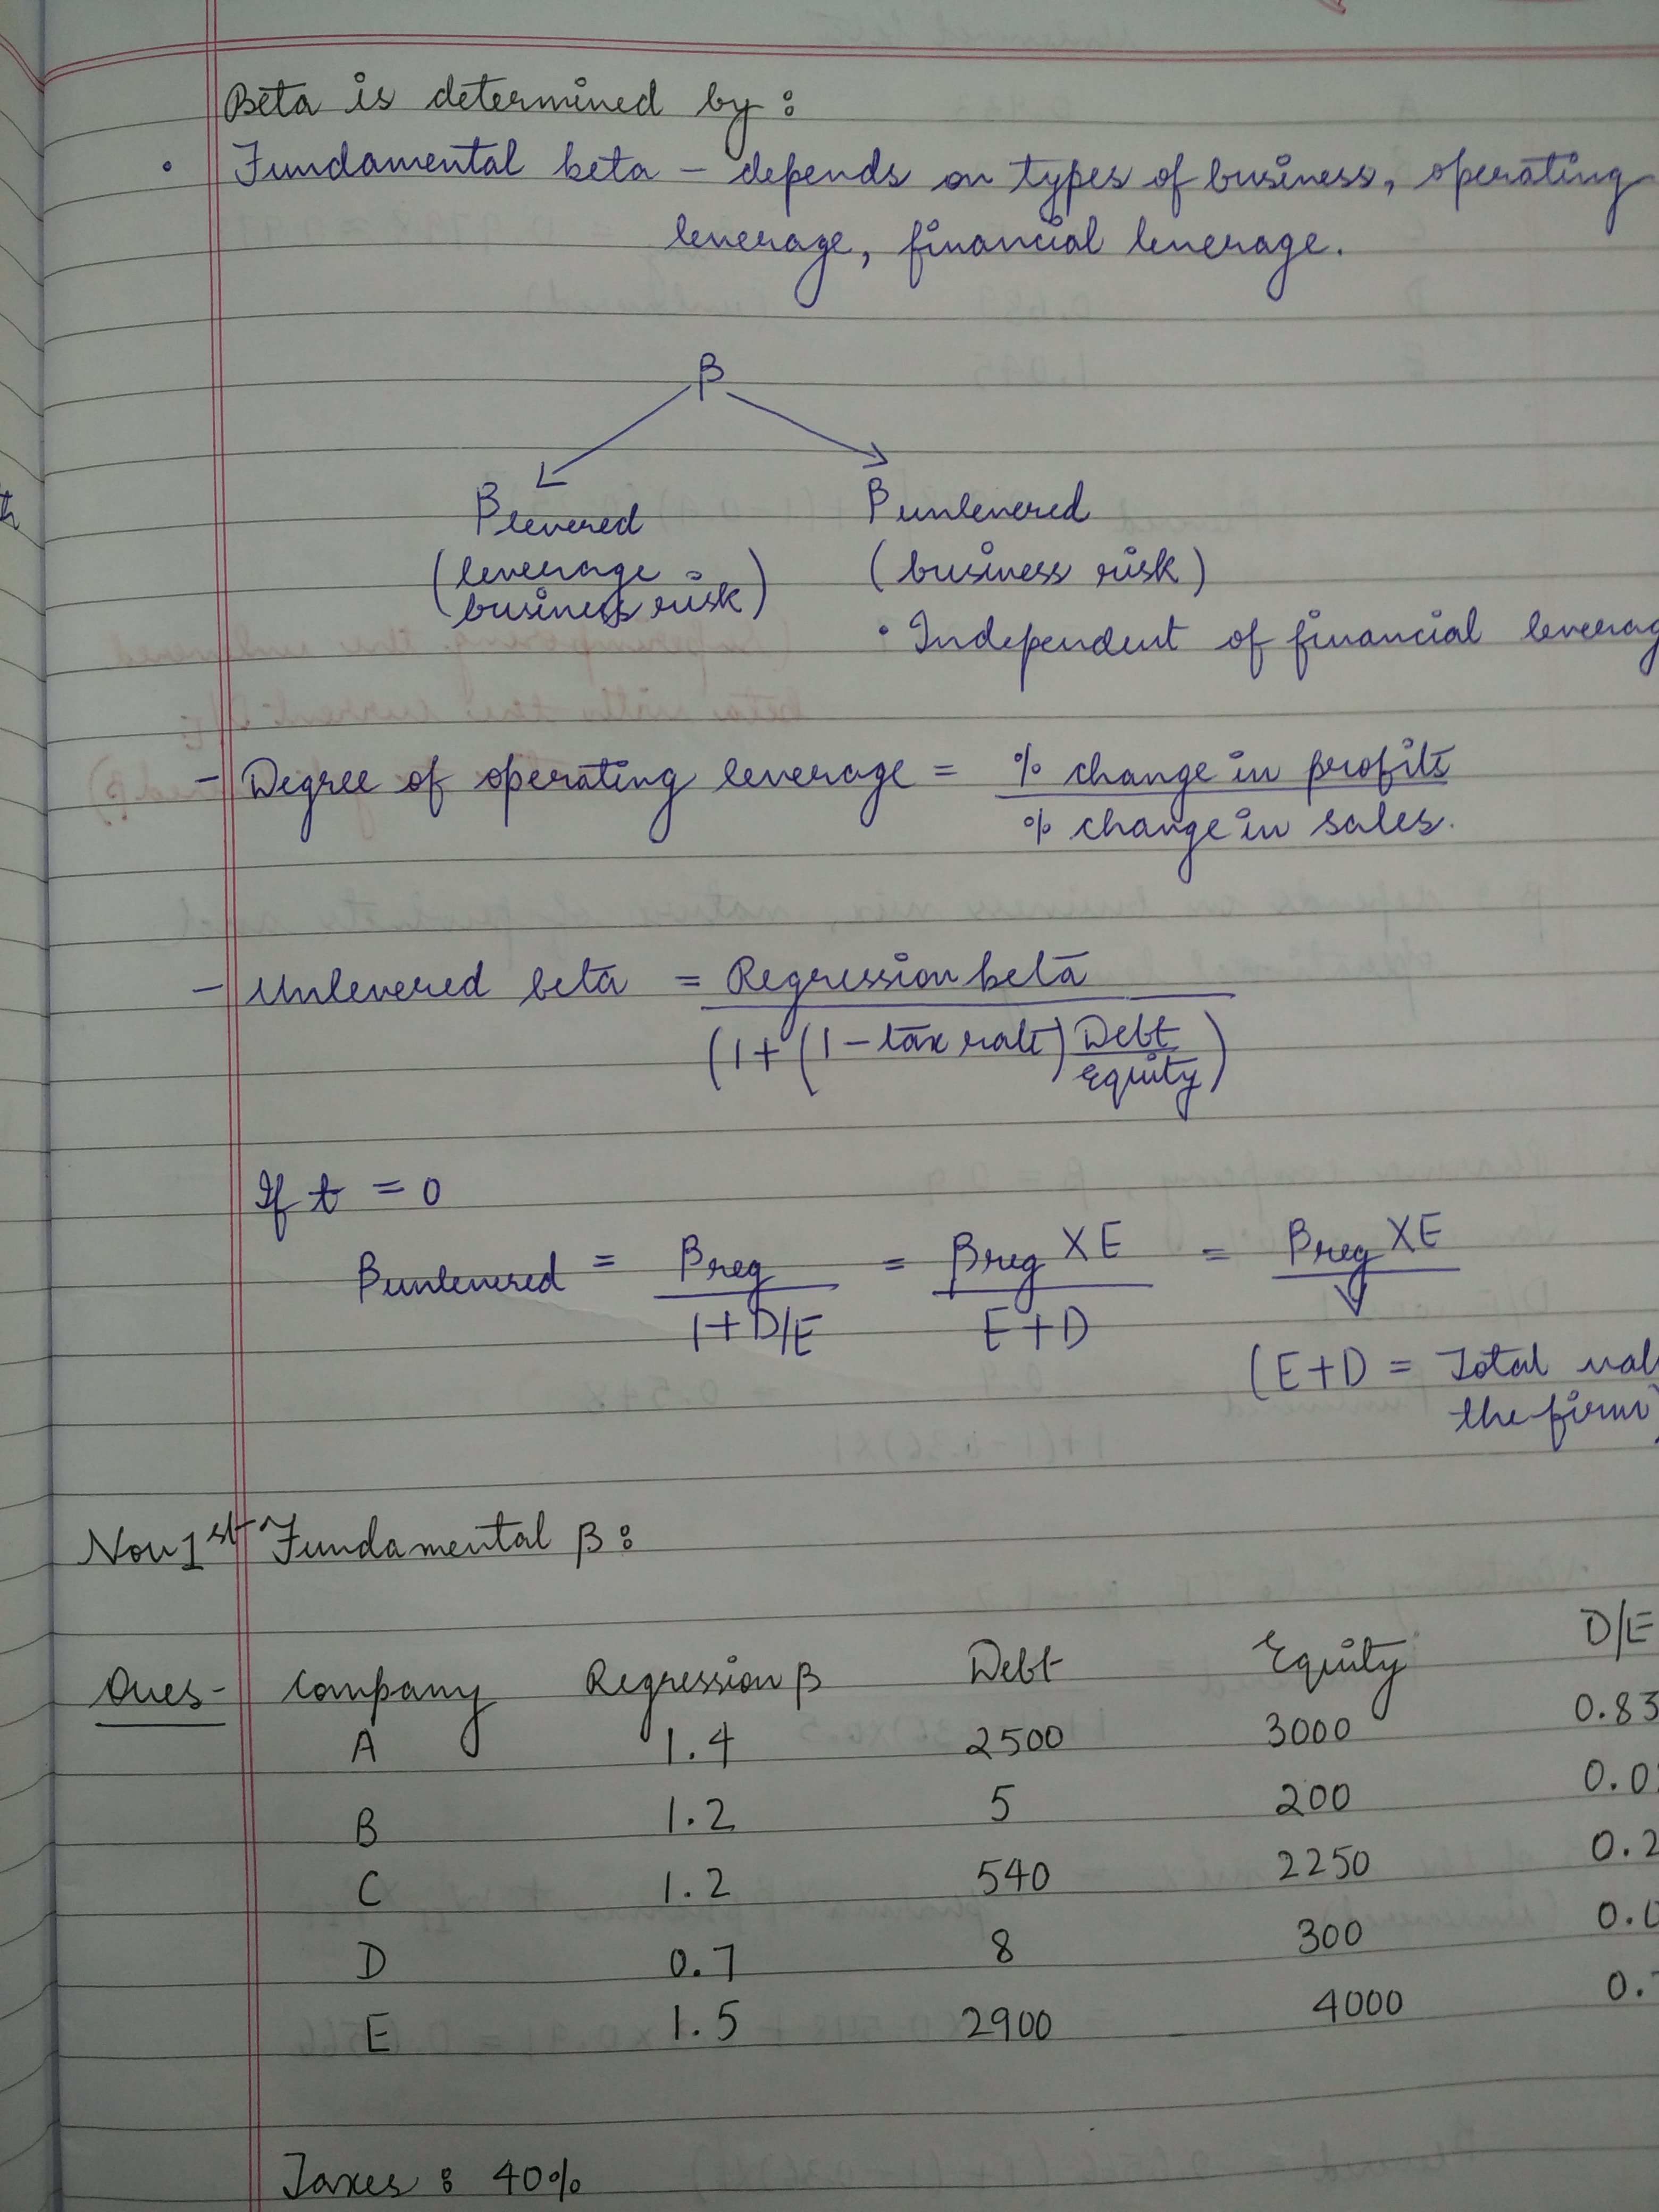 Beta is determined by :
• Fundamental beta – depends on types of business, operating
leverage, financial leverage.
β
β levered
β unlevered
(leverage
business risk)
(business risk)
• Independent of financial leverag
– Degree of operating leverage = % change in profits
% change in sales.
– Unlevered beta = Regression beta
(1 + (1 – tax rate) Debt
Equity)
If t = 0
β unlevered = βreg = βreg X E = βreg X E
1+D/E E+D V
(E+D = Total val
the firm)
Nov 1st Fundamental β :
Ques- Company Regression β Debt Equity D/E
A 1.4 2500 3000 0.83
B 1.2 5 200 0.0
C 1.2 540 2250 0.2
D 0.7 8 300 0.0
E 1.5 2900 4000 0.
Taxes : 40%